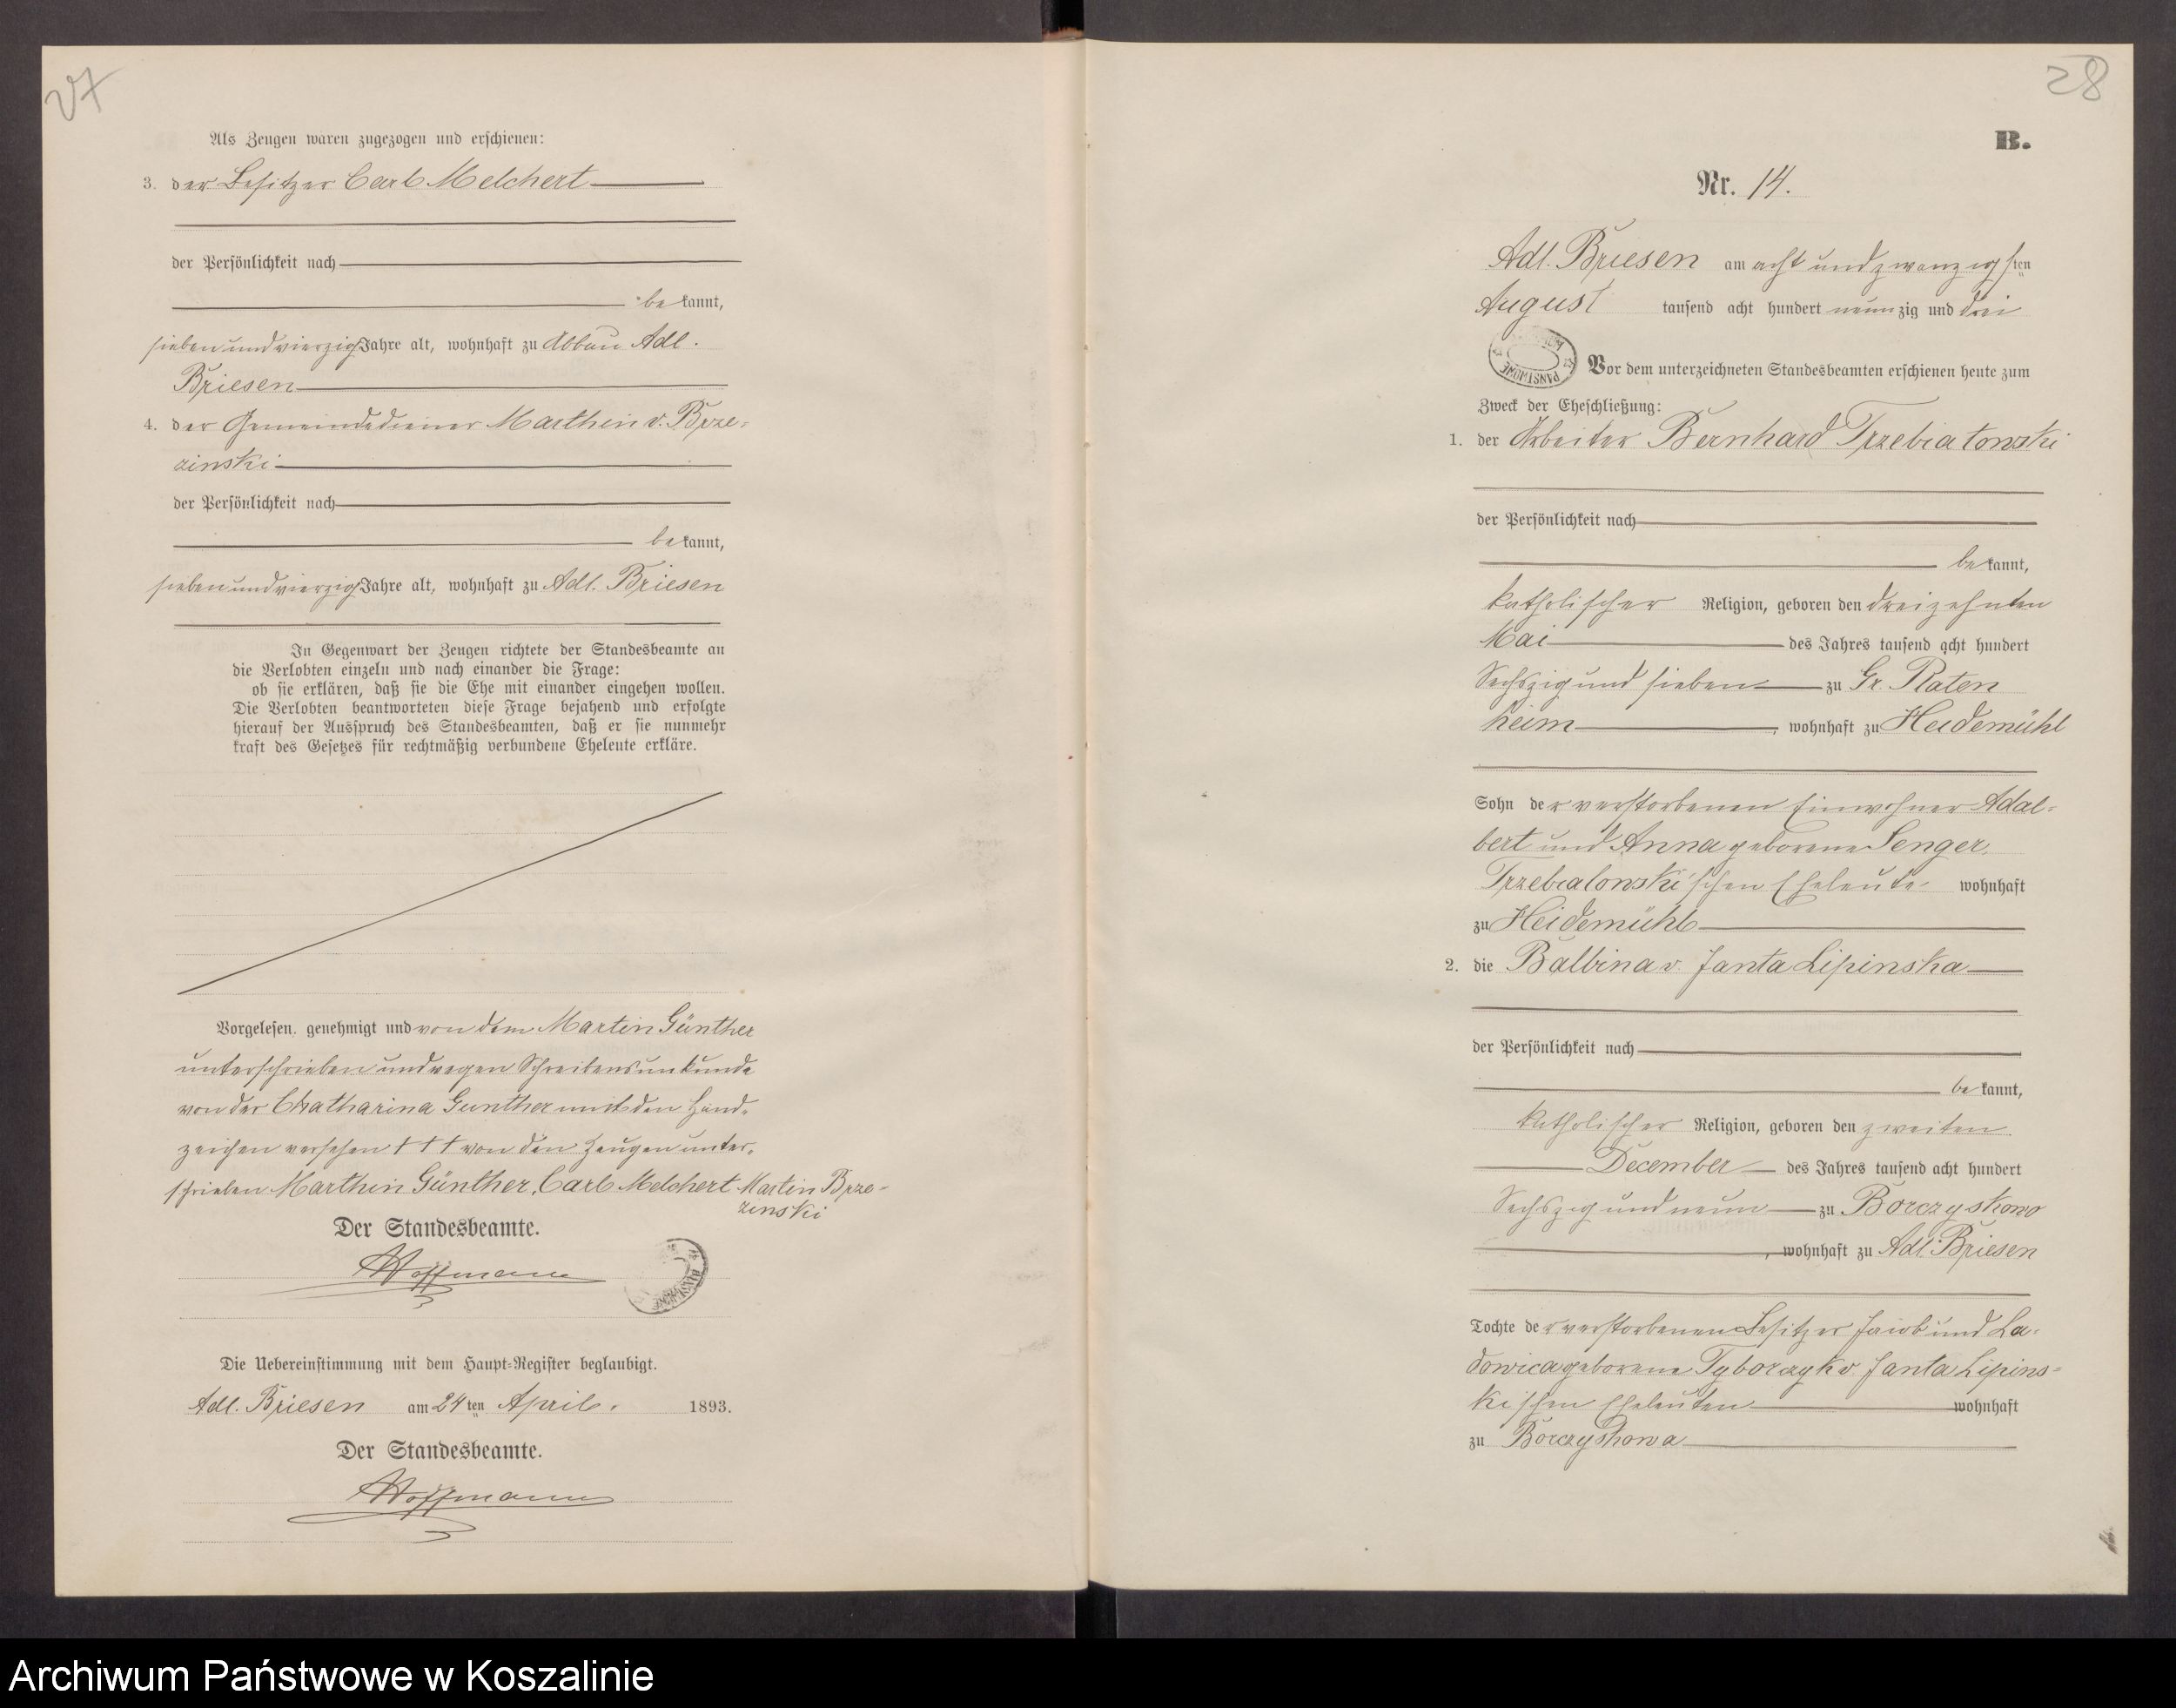 27
Als Zeugen waren zugezogen und erschienen:
3. der Besitzer Carl Melchert
der Persönlichkeit nach
bekannt,
siebenundvierzig Jahre alt, wohnhaft zu Abbau Adl.
Briesen
4. der Gemeindediener Marthin v. Brze=
zinski
der Persönlichkeit nach
bekannt,
siebenundvierzig Jahre alt, wohnhaft zu Adl. Briesen
In Gegenwart der Zeugen richtete der Standesbeamte an
die Verlobten einzeln und nach einander die Frage:
ob sie erklären, daß sie die Ehe mit einander eingehen wollen.
Die Verlobten beantworteten diese Frage bejahend und erfolgte
hierauf der Ausspruch des Standesbeamten, daß er sie nunmehr
kraft des Gesetzes für rechtmäßig verbundene Eheleute erkläre.
Vorgelesen, genehmigt und von dem Martin Günther
unterschrieben und wegen Schreibensunkunde
von der Chatharina Gunther mit den Hand=
zeichen versehen † † † von den Zeugen unter=
schrieben Marthin Günther, Carl Melchert Martin Brze=
zinski
Der Standesbeamte.
Hoffmann
Die Uebereinstimmung mit dem Haupt=Register beglaubigt.
Adl. Briesen am 24ten April 1893.
Der Standesbeamte.
Hoffmann
28
B.
Nr. 14.
Adl. Briesen am acht und zwanzigsten
August tausend acht hundert neunzig und drei
PAŃSTWOWE
Vor dem unterzeichneten Standesbeamten erschienen heute zum
Zweck der Eheschließung:
1. der Arbeiter Bernhard Trzebiatowski
der Persönlichkeit nach
bekannt,
katholischer Religion, geboren den dreizehnten
Mai des Jahres tausend acht hundert
Sechszig und sieben zu Gr. Platen
heim, wohnhaft zu Heidemühl
Sohn der verstorbenen Einwohner Adal=
bert und Anna geborene Senger,
Trzebiatowski'schen Eheleute wohnhaft
zu Heidemühl
2. die Balbina v. Janta Lipinska
der Persönlichkeit nach
bekannt,
katholischer Religion, geboren den zweiten
December des Jahres tausend acht hundert
Sechszig und neun zu Borczyskowo
, wohnhaft zu Adl. Briesen
Tochte der verstorbenen Besitzer Jacob und La=
dowica geborene Tyborczyk v. Janta Lipins=
kischen Eheleuten wohnhaft
zu Borczyskowa
Archiwum Państwowe w Koszalinie